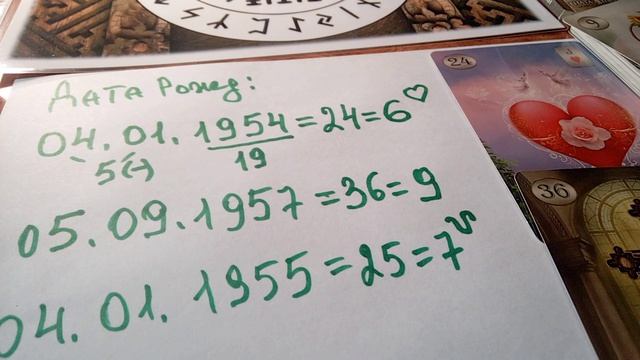 Дата Рожд:
04.01.1954=24=6♡
5(-) 19
05.09.1957=36=9
04.01.1955=25=7
24
J
36
9